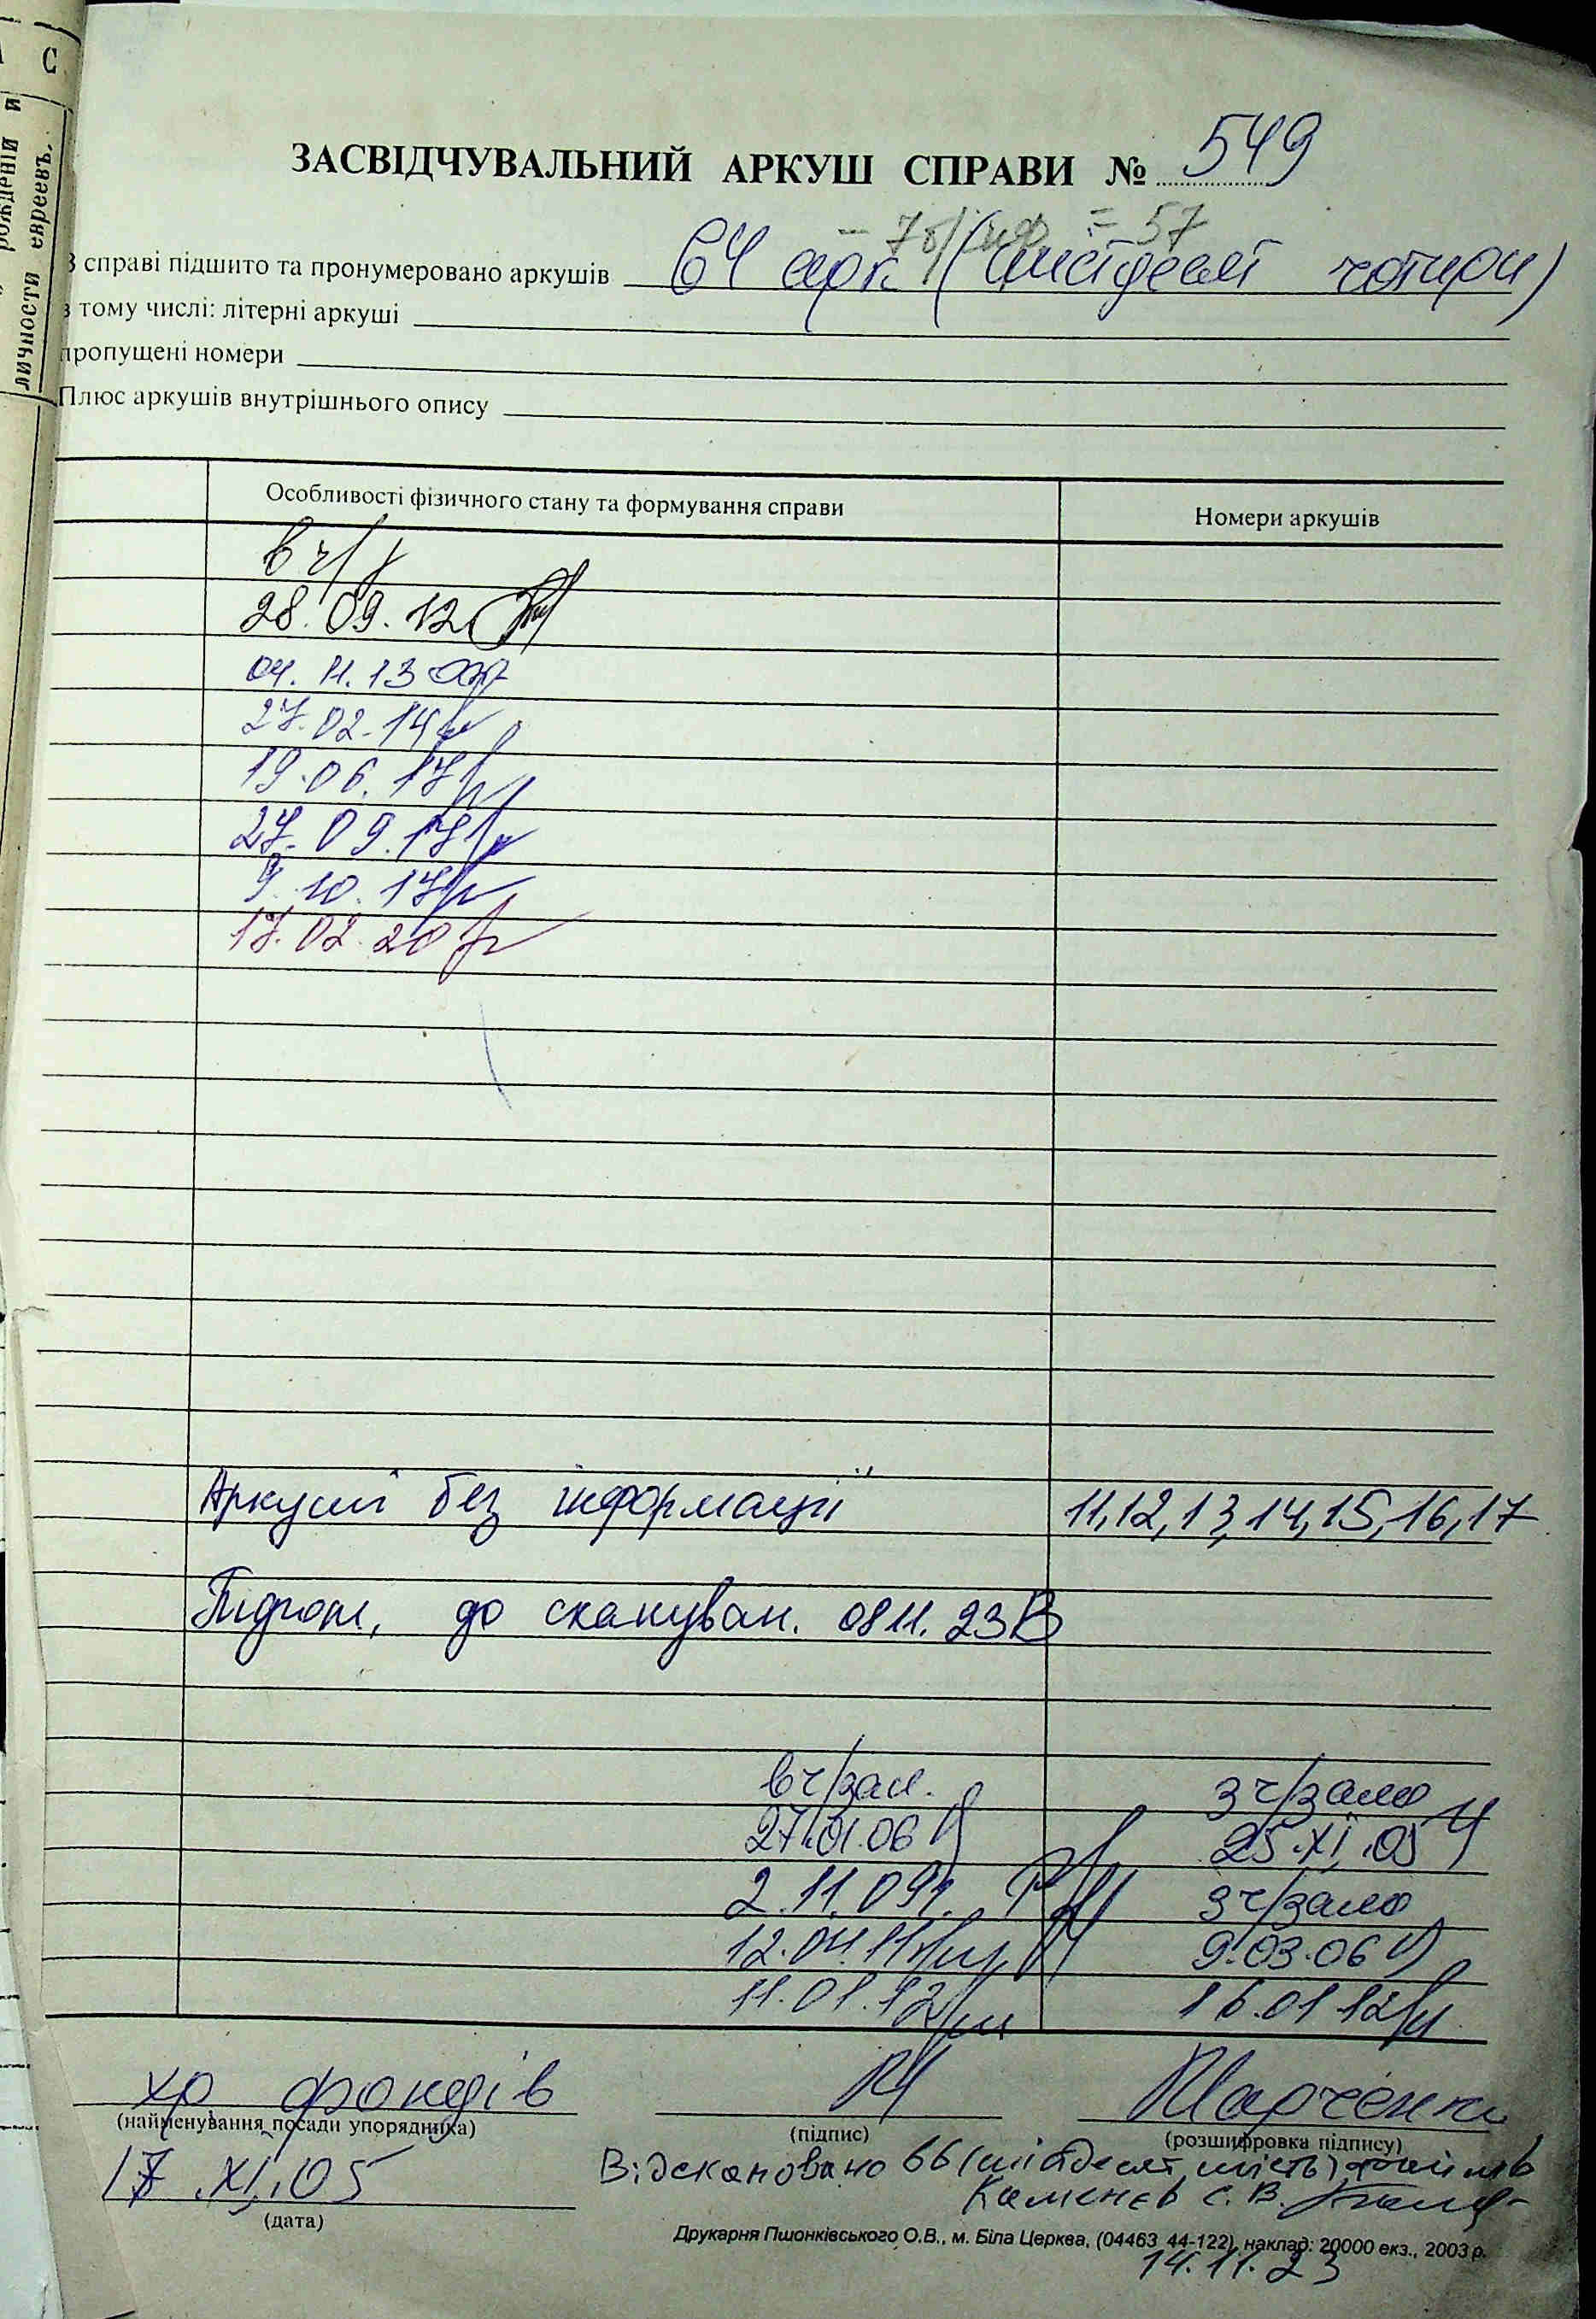 С
рожденій и
личности евреевъ.
ЗАСВІДЧУВАЛЬНИЙ АРКУШ СПРАВИ № 549
– 7 = 57
В справі підшито та пронумеровано аркушів 64 арк. (шістдесят чотири)
з тому числі: літерні аркуші
пропущені номери
Плюс аркушів внутрішнього опису
Особливості фізичного стану та формування справи
Номери аркушів
в ч/
28.09.12
04.11.13
27.02.14
19.06.17
27.09.17
9.10.17
17.02.20
Аркуші без інформації 11,12,13,14,15,16,17
Підгот. до скануван. 08 11. 23 В
в ч/зал. з ч/залю
27.01.06 25.XI.05
2.11.09р. з ч/залю
12.04.11 9.03.06
11.01.12 16.01.12
хр фондів Марченко
(найменування посади упорядника) (підпис) (розшифровка підпису)
17.XI.05 Відскановано 66 (шістдесят шість) файлів
Каменєв С.В.
(дата)
Друкарня Пшонківського О.В., м. Біла Церква, (04463 44-122), наклад: 20000 екз., 2003 р.
14.11.23